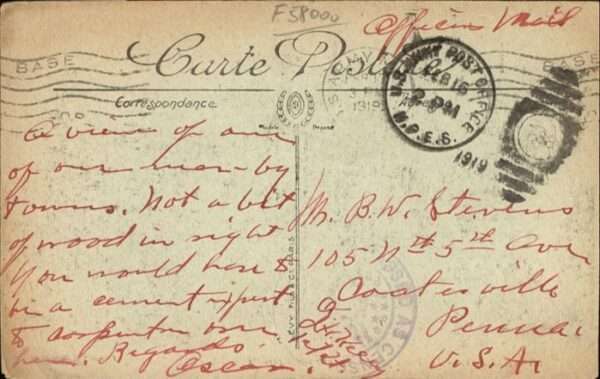 F 58000
Officers Mail
BASE
BASE
Carte Postale
U.S. ARMY POST OFFICE
FEB 16
2 PM
M.P.E.S.
1919
1919
Correspondance
A view of one
of our near-by
towns. Not a bit
of wood in sight
You would have to
be a cement expert
to carpenter over
here. Regards.
Oscar.
Mr. B.W. Stevens
105 N 5th Ave
Coatesville
Penna.
U.S.A.
LEVY FILS & Cie PARIS
PASSED AS CENSORED